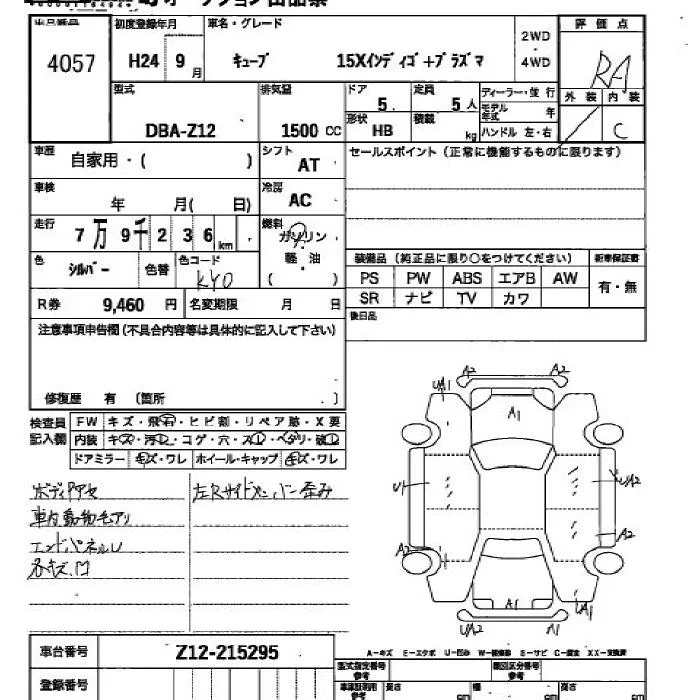 オークション出品票
出品番号 初度登録年月 車名・グレード 2WD・4WD 評価点
4057 H24 9月 キューブ 15Xインディゴ+プラズマ RA
型式 排気量 ドア 5. 定員 5人 ディーラー・並行 外装 内装
DBA-Z12 1500 CC 形状 HB 積載 kg モデル年式 年 ハンドル 左・右 C
車歴 自家用・( ) シフト AT セールスポイント(正常に機能するものに限ります)
車検 年 月( 日) 冷房 AC
走行 7万9千236km 燃料 ガソリン
軽・油
( )
色 シルバー 色替 色コード KY0
装備品(純正品に限り○をつけてください) 新車保証書
PS PW ABS エアB AW 有・無
SR ナビ TV カワ
R券 9,460 円 名変期限 月 日 後日品
注意事項申告欄(不具合内容等は具体的に記入して下さい)
修復歴 有 〔箇所 〕
検査員記入欄 FW キズ・飛石・ヒビ割・リペア跡・X要
内装 キズ・汚レ・コゲ・穴・スレ・ヘタリ・破レ
ドアミラー キズ・ワレ ホイール・キャップ キズ・ワレ
車内動物毛アリ
エンドパネルU
各キズ凹
左Rサイドメンバー歪み
A2 A2
UA1 A1
U1 UA2
A2 A2
UA2 A1 UA1
A-キズ E-エクボ U-凹み W-補修跡 S-サビ C-腐食 XX-交換済
車台番号 Z12-215295
登録番号
型式指定番号 参考 類別区分番号 参考
長さ cm 幅 cm 高さ cm